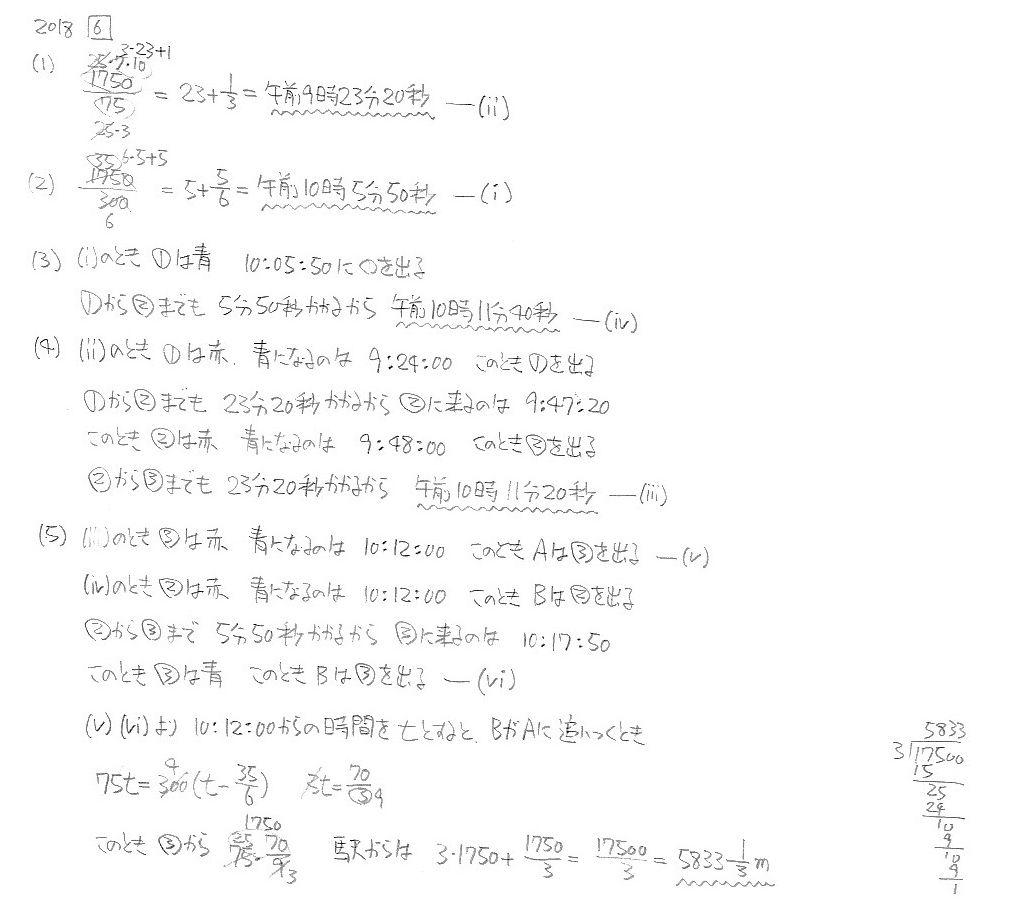 2018 6
(1) 1750/75 = 23+1/3 = 午前9時23分20秒 —(ii)
25·7·10
3·23+1
25·3
(2) 1750/300 = 5+5/6 = 午前10時5分50秒 —(i)
35
6·5+5
6
(3) (i)のとき ①は青 10:05:50に①を出る
①から②までも 5分50秒かかるから 午前10時11分40秒 —(iv)
(4) (ii)のとき ①は赤. 青になるのは 9:24:00 このとき①を出る
①から②までも 23分20秒かかるから ②に来るのは 9:47:20
このとき②は赤 青になるのは 9:48:00 このとき②を出る
②から③までも 23分20秒かかるから 午前10時11分20秒 —(iii)
(5) (iii)のとき ③は赤 青になるのは 10:12:00 このとき Aは③を出る —(v)
(iv)のとき②は赤 青になるのは 10:12:00 このとき Bは②を出る
②から③まで 5分50秒かかるから ③に来るのは 10:17:50
このとき③は青 このとき Bは③を出る —(vi)
(v)(vi)より 10:12:00からの時間を tとすると、BがAに追いつくとき
75t=300(t-35/6) 3t=70/3
4
9
このとき③から 75·70/9 駅からは 3·1750+1750/3=17500/3=5833 1/3 m
1750
25
3
5833
3)17500
15
25
24
10
9
10
9
1